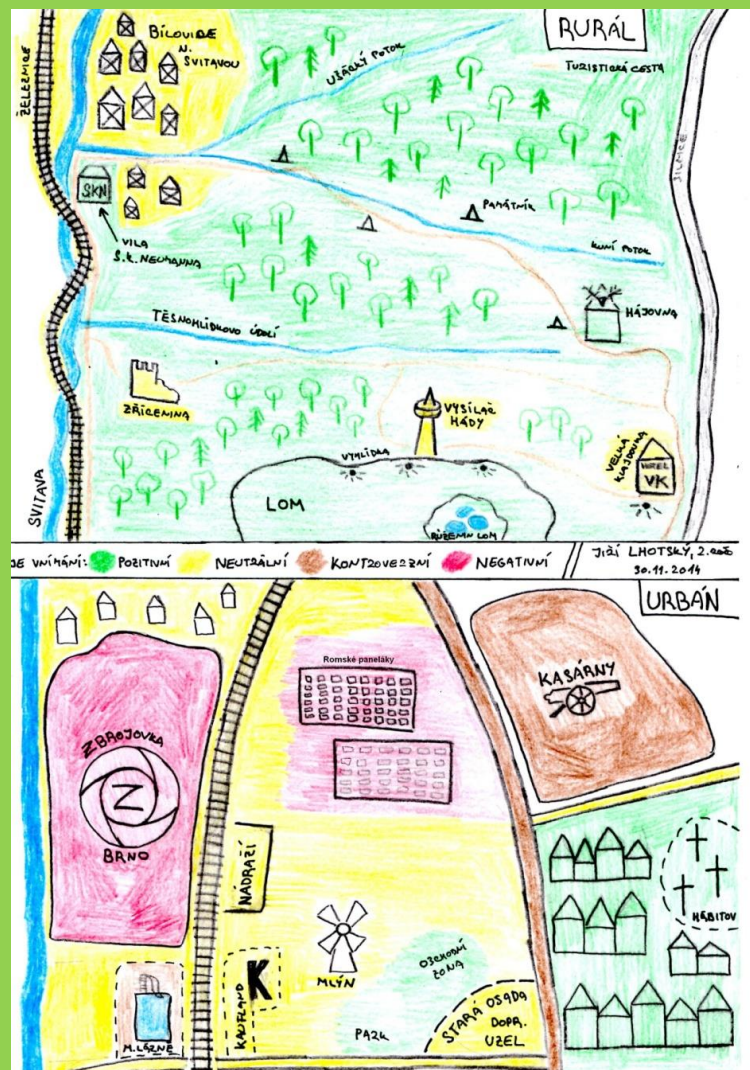 RURÁL
BÍLOVICE
N.
SVITAVOU
ŽELEZNICE
UŠÁCKÝ POTOK
TURISTICKÁ CESTA
SILNICE
SKN
VILA
S.K. NEUMANNA
PAMÁTNÍK
KUNÍ POTOK
HÁJOVNA
TĚSNOHLÍDKOVO ÚDOLÍ
ZŘÍCENINA
VYSÍLAČ
HÁDY
VELKÁ
KLAJDOVKA
HOTEL
VK
VYHLÍDKA
LOM
RŮŽENIN LOM
SVITAVA
VNÍMÁNÍ: POZITIVNÍ NEUTRÁLNÍ KONTROVERZNÍ NEGATIVNÍ
JIŘÍ LHOTSKÝ, 2.
30.11.2014
URBÁN
Romské paneláky
KASÁRNY
ZBROJOVKA
Z
BRNO
NÁDRAŽÍ
HŘBITOV
MLÝN
OBCHODNÍ
ZÓNA
K
KAUFLAND
PARK
STARÁ OSADA
DOPR.
UZEL
M. LÁZNĚ